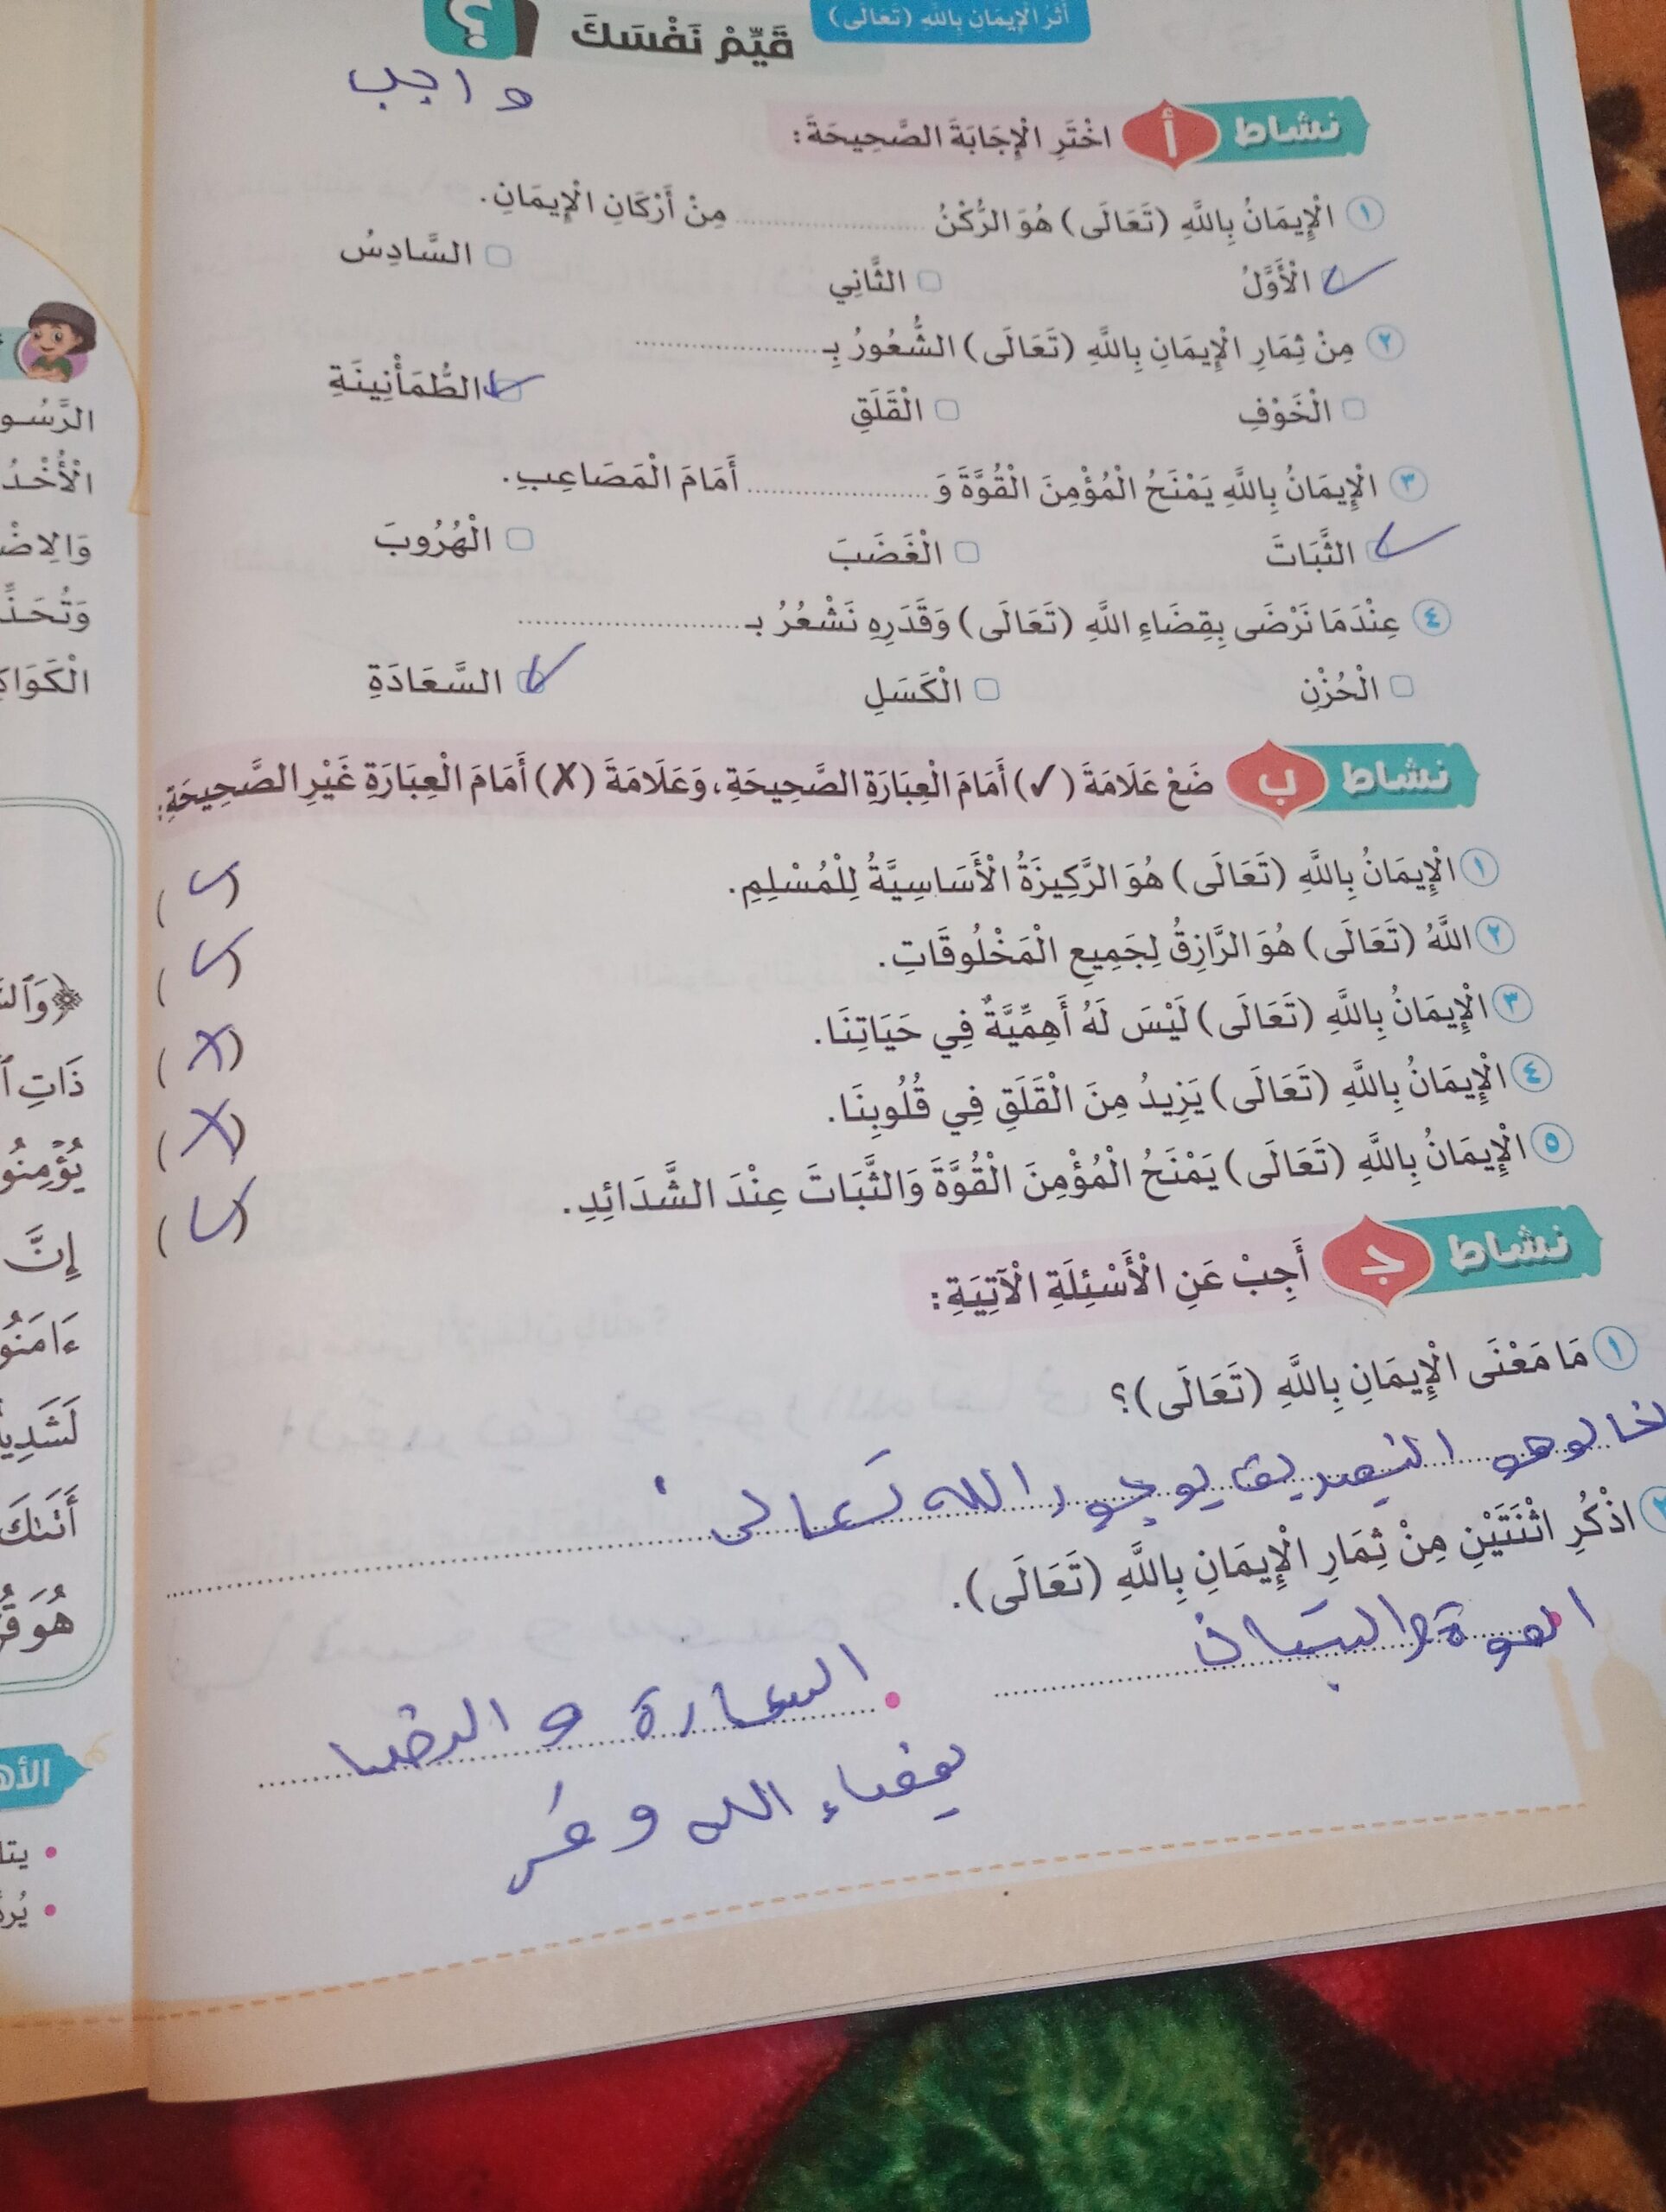 أَثَرُ الْإِيمَانِ بِاللَّهِ (تَعَالَى)
قَيِّمْ نَفْسَكَ ؟
واجب
نشاط أ اخْتَرِ الْإِجَابَةَ الصَّحِيحَةَ:
١ الْإِيمَانُ بِاللَّهِ (تَعَالَى) هُوَ الرُّكْنُ ............ مِنْ أَرْكَانِ الْإِيمَانِ.
الْأَوَّلُ الثَّانِي السَّادِسُ
٢ مِنْ ثِمَارِ الْإِيمَانِ بِاللَّهِ (تَعَالَى) الشُّعُورُ بِـ ............
الْخَوْفِ الْقَلَقِ الطُّمَأْنِينَةِ
٣ الْإِيمَانُ بِاللَّهِ يَمْنَحُ الْمُؤْمِنَ الْقُوَّةَ وَ ............ أَمَامَ الْمَصَاعِبِ.
الثَّبَاتَ الْغَضَبَ الْهُرُوبَ
٤ عِنْدَمَا نَرْضَى بِقِضَاءِ اللَّهِ (تَعَالَى) وَقَدَرِهِ نَشْعُرُ بـ ............
الْحُزْنِ الْكَسَلِ السَّعَادَةِ
نشاط ب ضَعْ عَلَامَةَ (✓) أَمَامَ الْعِبَارَةِ الصَّحِيحَةِ، وَعَلَامَةَ (✗) أَمَامَ الْعِبَارَةِ غَيْرِ الصَّحِيحَةِ:
١ الْإِيمَانُ بِاللَّهِ (تَعَالَى) هُوَ الرَّكِيزَةُ الْأَسَاسِيَّةُ لِلْمُسْلِمِ. (✓)
٢ اللَّهُ (تَعَالَى) هُوَ الرَّازِقُ لِجَمِيعِ الْمَخْلُوقَاتِ. (✓)
٣ الْإِيمَانُ بِاللَّهِ (تَعَالَى) لَيْسَ لَهُ أَهِمِّيَّةٌ فِي حَيَاتِنَا. (✗)
٤ الْإِيمَانُ بِاللَّهِ (تَعَالَى) يَزِيدُ مِنَ الْقَلَقِ فِي قُلُوبِنَا. (✗)
٥ الْإِيمَانُ بِاللَّهِ (تَعَالَى) يَمْنَحُ الْمُؤْمِنَ الْقُوَّةَ وَالثَّبَاتَ عِنْدَ الشَّدَائِدِ. (✓)
نشاط جـ أَجِبْ عَنِ الْأَسْئِلَةِ الْآتِيَةِ:
١ مَا مَعْنَى الْإِيمَانِ بِاللَّهِ (تَعَالَى)؟
هو التصديق بوجود الله تعالى
٢ اذْكُرِ اثْنَتَيْنِ مِنْ ثِمَارِ الْإِيمَانِ بِاللَّهِ (تَعَالَى).
القوة والثبات
السعادة و الرضا
بقضاء الله و
الرَّسُو
الْأُخْدُ
وَالِاضْ
وَتُحَذِّ
الْكَوَا
ذَاتِ
يُؤْمِنُو
إِنَّ
ءَامَنُو
لَشَدِي
أَتَىٰكَ
هُوَ قُ
الأه
يتا